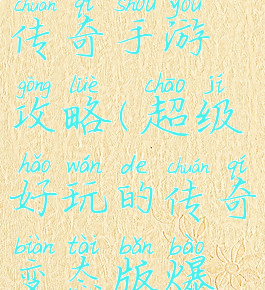 chuán qí shǒu yóu
传奇手游
gōng lüè chāo jí
攻略(超级
hǎo wán de chuán qí
好玩的传奇
biàn tài bǎn bào
变态版爆